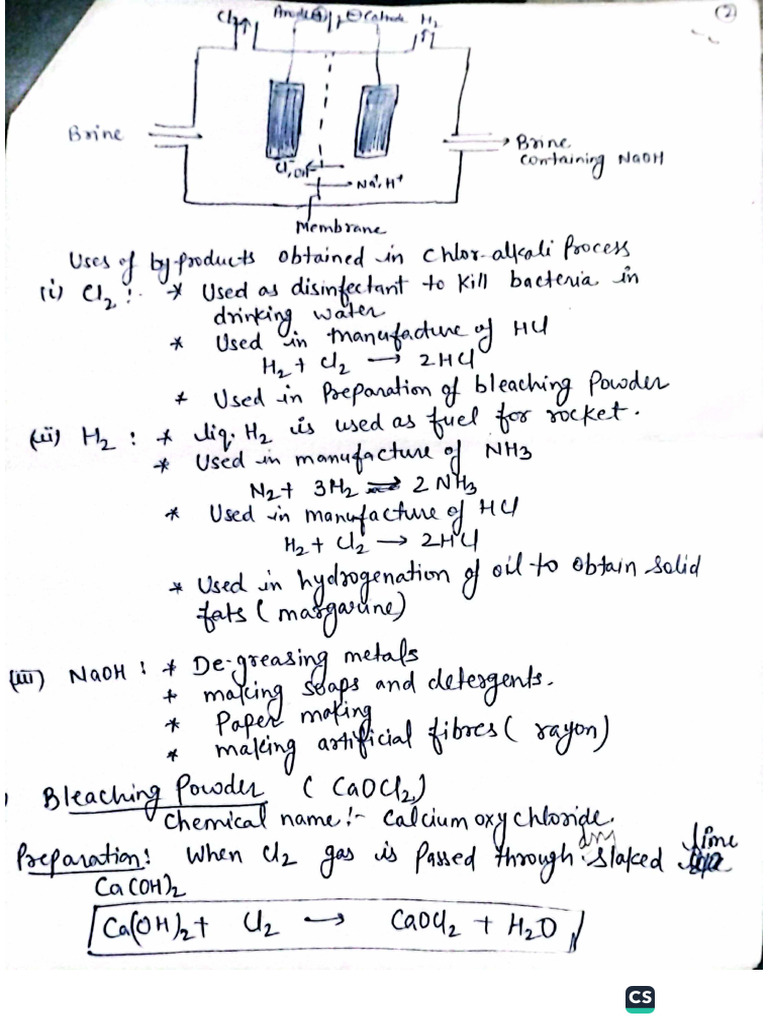 (2)
Cl2↑ Anode⊕ ⊖Cathode H2↑
Brine
Brine
containing NaOH
Cl⁻, OH⁻
Na⁺, H⁺
Membrane
Uses of by-products obtained in chlor-alkali Process
(i) Cl2 :- * Used as disinfectant to kill bacteria in
drinking water
* Used in manufacture of HCl
H2 + Cl2 → 2HCl
* Used in Preparation of bleaching Powder
(ii) H2 : * liq. H2 is used as fuel for rocket.
* Used in manufacture of NH3
N2 + 3H2 ⇌ 2NH3
* Used in manufacture of HCl
H2 + Cl2 → 2HCl
* Used in hydrogenation of oil to obtain solid
fats (margarine)
(iii) NaOH : * De-greasing metals
* making soaps and detergents.
* Paper making
* making artificial fibres (rayon)
Bleaching Powder (CaOCl2)
Chemical name:- Calcium oxy chloride.
Preparation: When Cl2 gas is Passed through dry slaked lime
Ca(OH)2
Ca(OH)2 + Cl2 → CaOCl2 + H2O
CS